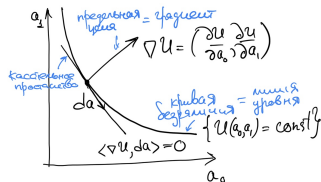 a₁
предельная = градиент
цена
∇U = (∂U/∂a₀, ∂U/∂a₁)
касательное
пространство
da
кривая = линия
безразличия уровня
{U(a₀,a₁) = const}
⟨∇U, da⟩ = 0
a₀